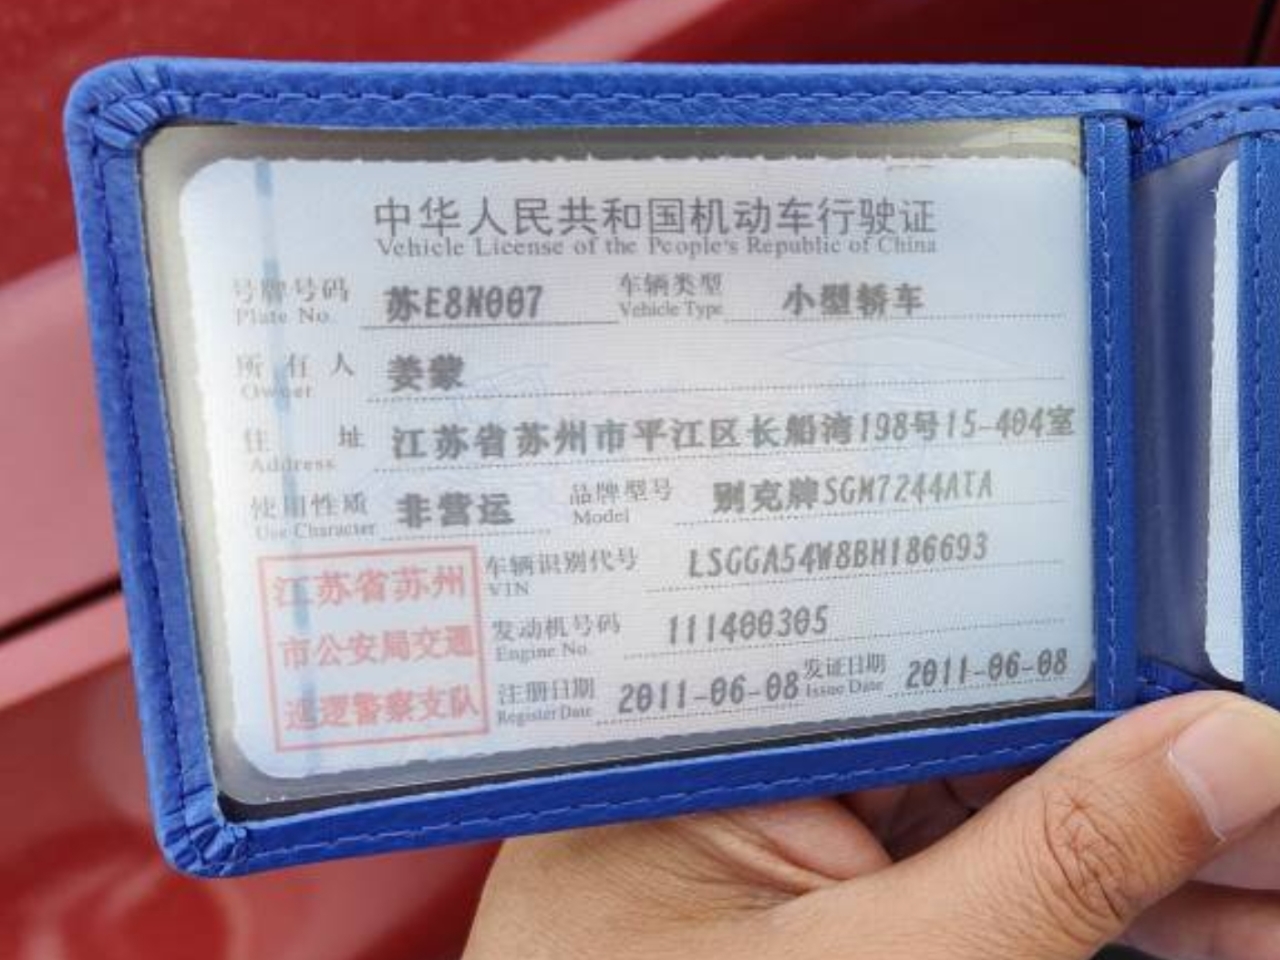 中华人民共和国机动车行驶证
Vehicle License of the People's Republic of China
号牌号码 苏E8N007 车辆类型 小型轿车
Plate No. Vehicle Type
所有人 姜蒙
Owner
住址 江苏省苏州市平江区长船湾198号15-404室
Address
使用性质 非营运 品牌型号 别克牌SGM7244ATA
Use Character Model
车辆识别代号 LSGGA54W8BH186693
VIN
发动机号码 111400305
Engine No.
注册日期 2011-06-08 发证日期 2011-06-08
Register Date Issue Date
江苏省苏州
市公安局交通
巡逻警察支队